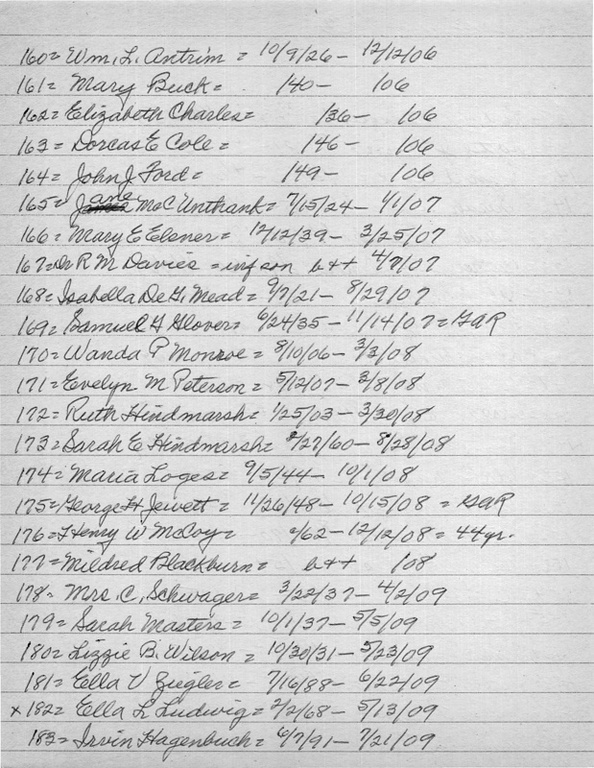 160= Wm. L. Antrim = 10/9/26 - 12/12/06
161= Mary Buck = 140- 106
162= Elizabeth Charles= 136- 106
163= Dorcas E Cole= 146- 106
164= John J. Ford= 149- 106
165= Jane McC Unthank= 7/15/24- 1/1/07
166= Mary E Elsner= 12/12/39- 3/25/07
167= Dr R M Davies = inf son b++ 4/7/07
168= Isabella De G. Mead= 9/7/21- 8/29/07
169= Samuel G Glover= 6/24/35- 11/14/07= GAR
170= Wanda P Monroe= 8/10/06- 3/3/08
171= Evelyn M Peterson= 5/12/07- 3/8/08
172= Ruth Hindmarsh= 1/25/03- 3/30/08
173= Sarah E Hindmarsh= 2/27/60- 8/28/08
174= Maria Loges= 9/5/44- 10/1/08
175= George H Jewett= 11/26/48- 10/15/08 = GAR
176= Henry W McCoy= /62- 12/12/08= 44yr.
177= Mildred Blackburn= b++ 108
178= Mrs. C. Schwager= 3/22/37- 4/2/09
179= Sarah Masters= 10/1/37- 5/5/09
180= Lizzie B. Wilson = 10/30/31- 5/23/09
181= Ella V Ziegler= 7/16/88- 6/22/09
x 182= Ella L Ludwig= 2/2/68- 5/13/09
183= Irvin Hagenbuch= 6/7/91- 7/21/09